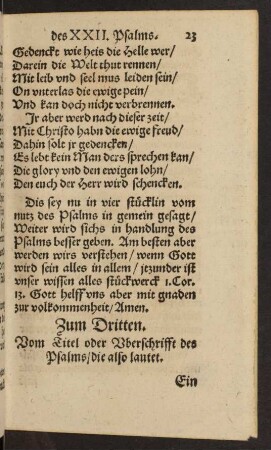 des XXII. Psalms. 23
Gedenckt wie heis die Helle wer/
Darein die Welt thut rennen/
Mit leib vnd seel mus leiden sein/
On vnterlas die ewige pein/
Vnd kan doch nicht verbrennen.
Jr aber werd nach dieser zeit/
Mit Christo habn die ewige freud/
Dahin solt jr gedencken/
Es lebt kein Man ders sprechen kan/
Die glory vnd den ewigen lohn/
Den euch der Herr wird schencken.
Dis sey nu in vier stücklin vom
nutz des Psalms in gemein gesagt/
Weiter wird sichs in handlung des
Psalms besser geben. Am besten aber
werden wirs verstehen/ wenn Gott
wird sein alles in allem/ jtzunder ist
vnser wissen alles stückwerck 1. Cor.
13. Gott helff vns aber mit gnaden
zur volkommenheit/ Amen.
Zum Dritten.
Vom Titel oder Vberschrifft des
Psalms/ die also lautet.
Ein